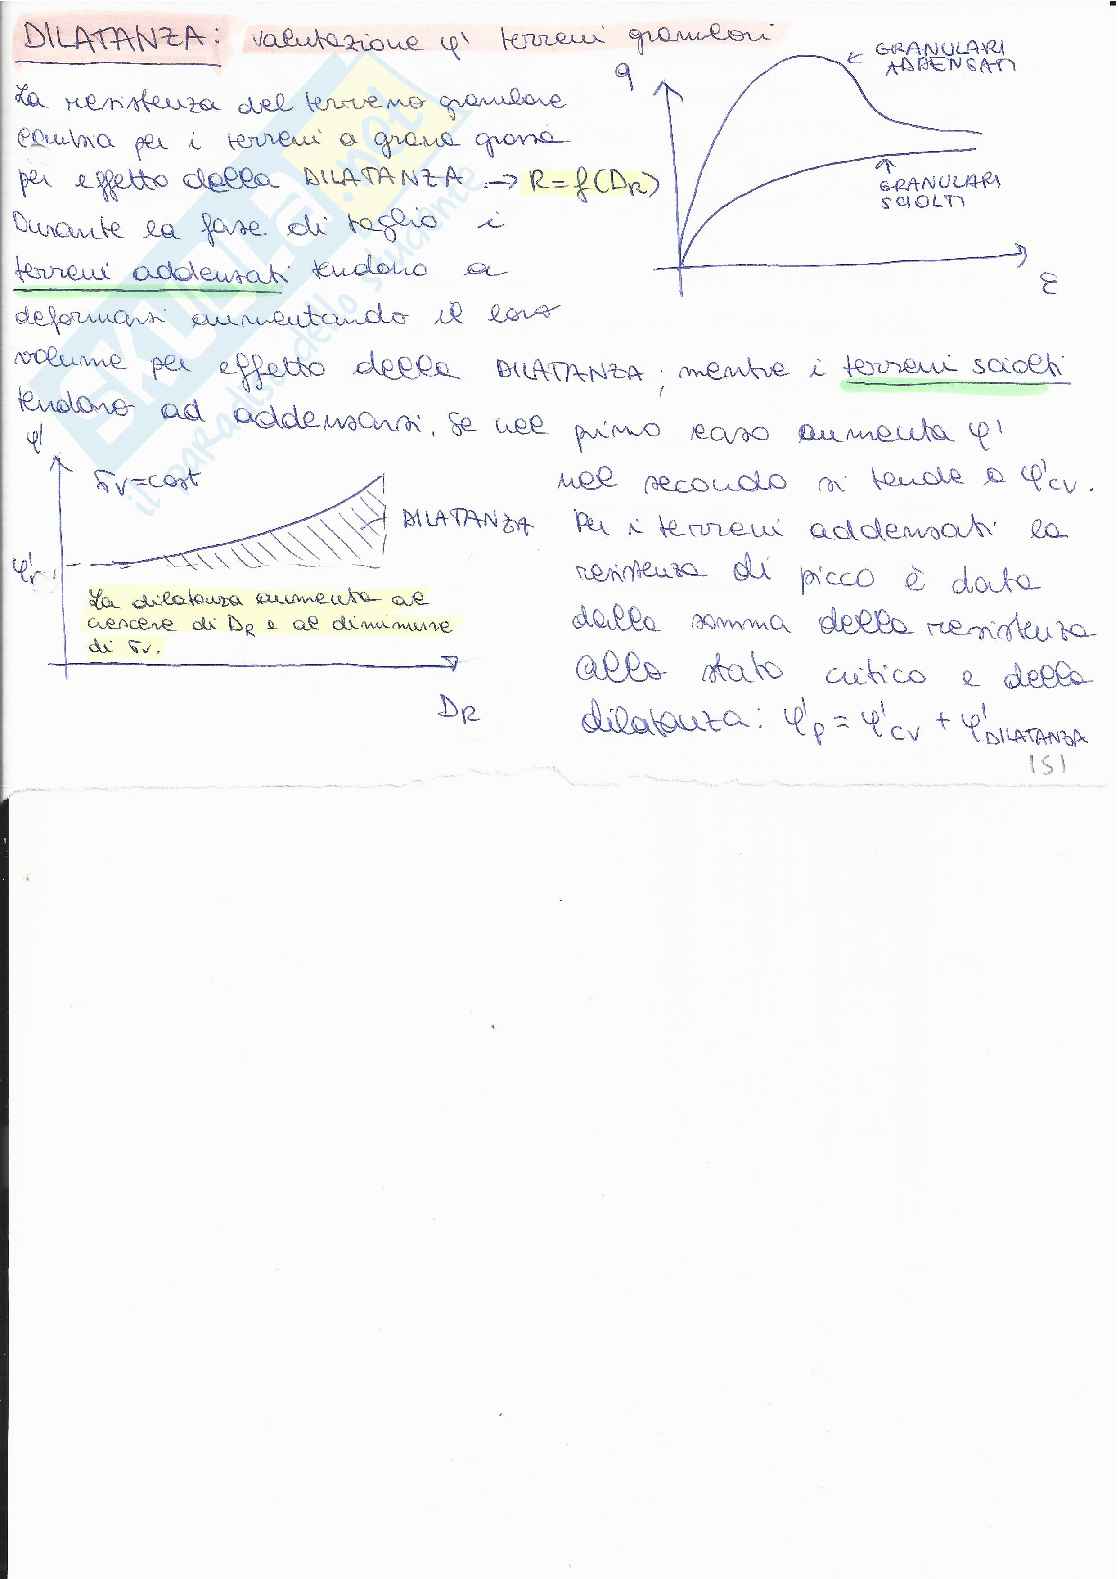 DILATANZA: valutazione φ' terreni granulari
La resistenza del terreno granulare
cambia per i terreni a grana grossa
per effetto della DILATANZA → R=f(DR)
Durante la fase di taglio i
terreni addensati tendono a
deformarsi aumentando il loro
volume per effetto della DILATANZA, mentre i terreni sciolti
tendono ad addensarsi. Se nel primo caso aumenta φ'
nel secondo si tende a φ'cv.
Per i terreni addensati la
resistenza di picco è data
dalla somma della resistenza
allo stato critico e della
dilatanza: φ'p = φ'cv + φ'DILATANZA
q
GRANULARI
ADDENSATI
GRANULARI
SCIOLTI
ε
φ'
σv=cost
DILATANZA
φ'r
La dilatanza aumenta al
crescere di DR e al diminuire
di σv.
DR
|S|
SKUOLA.net
il paradiso dello studente